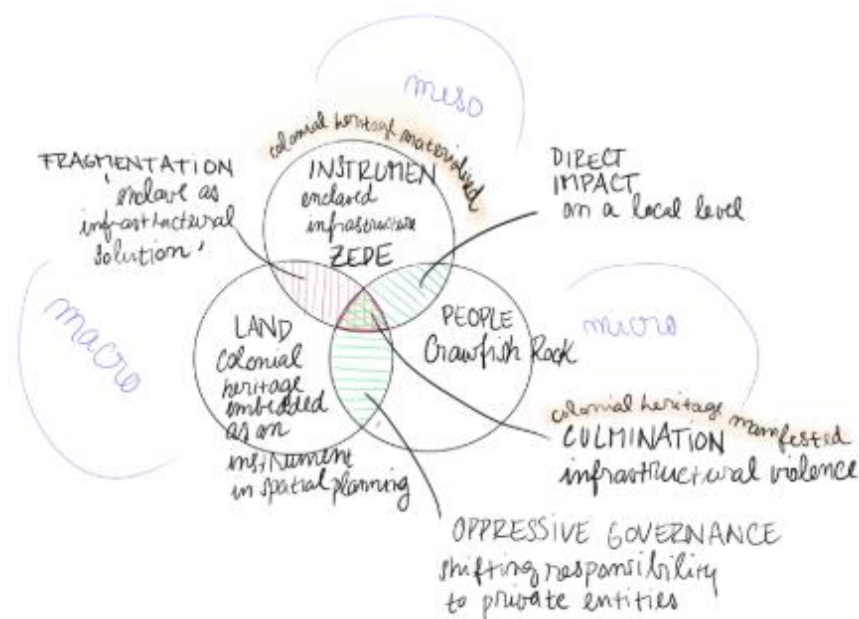 miso
colonial heritage materialised
FRAGMENTATION
'enclave as
infrastructural
solution'
INSTRUMEN
enclaved
infrastructure
ZEDE
DIRECT
IMPACT
on a local level
macro
LAND
colonial
heritage
embedded
as an
instrument
in spatial planning
PEOPLE
Crawfish Rock
micro
colonial heritage manifested
CULMINATION
infrastructural violence
OPPRESSIVE GOVERNANCE
shifting responsibility
to private entities